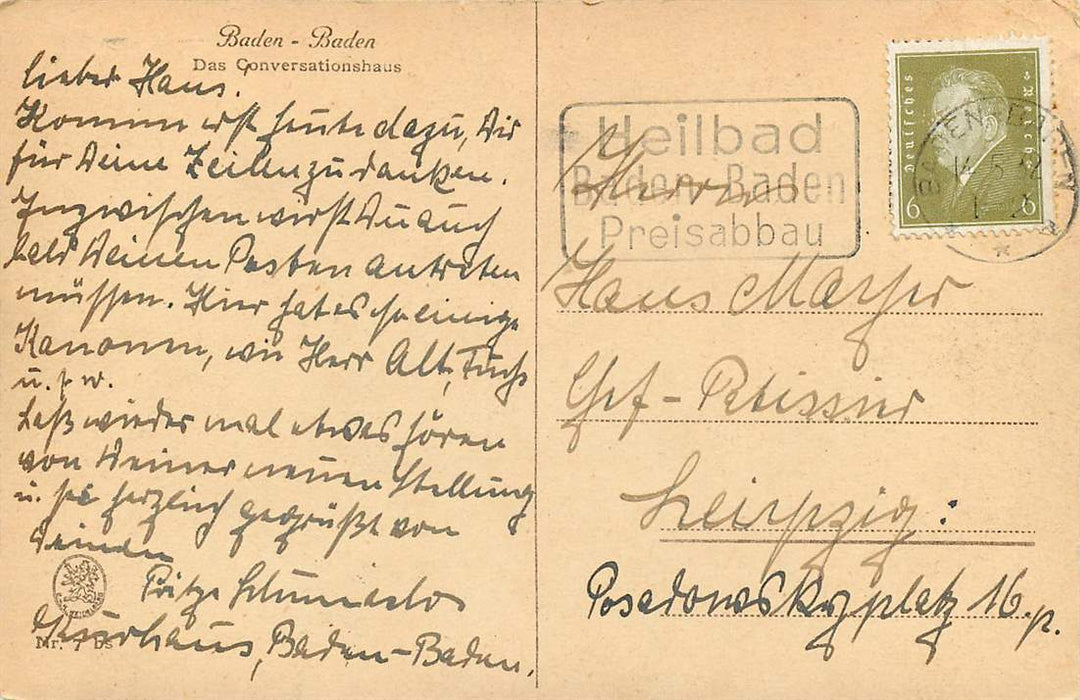 Baden - Baden
Das Conversationshaus
Lieber Hans.
Komme erst heute dazu, Dir
für Deine Zeilen zu danken.
Inzwischen wirst Du auch
bald Deinen Posten antreten
müssen. Hier hat es so einige
Kanonen, wie Herr Alt, Fuchs
u. s. w.
Laß wieder mal etwas hören
von Deiner neuen Stellung
u. sei herzlich gegrüßt von
Deinem
Kurhaus, Baden-Baden.
Nr. 7 bs
Heilbad
Baden-Baden
Preisabbau
Deutsches Reich
6 6
BADEN-BADEN
Herrn
Hans Mayer
Chef-
Leipzig:
Posadowskyplatz 16 p.